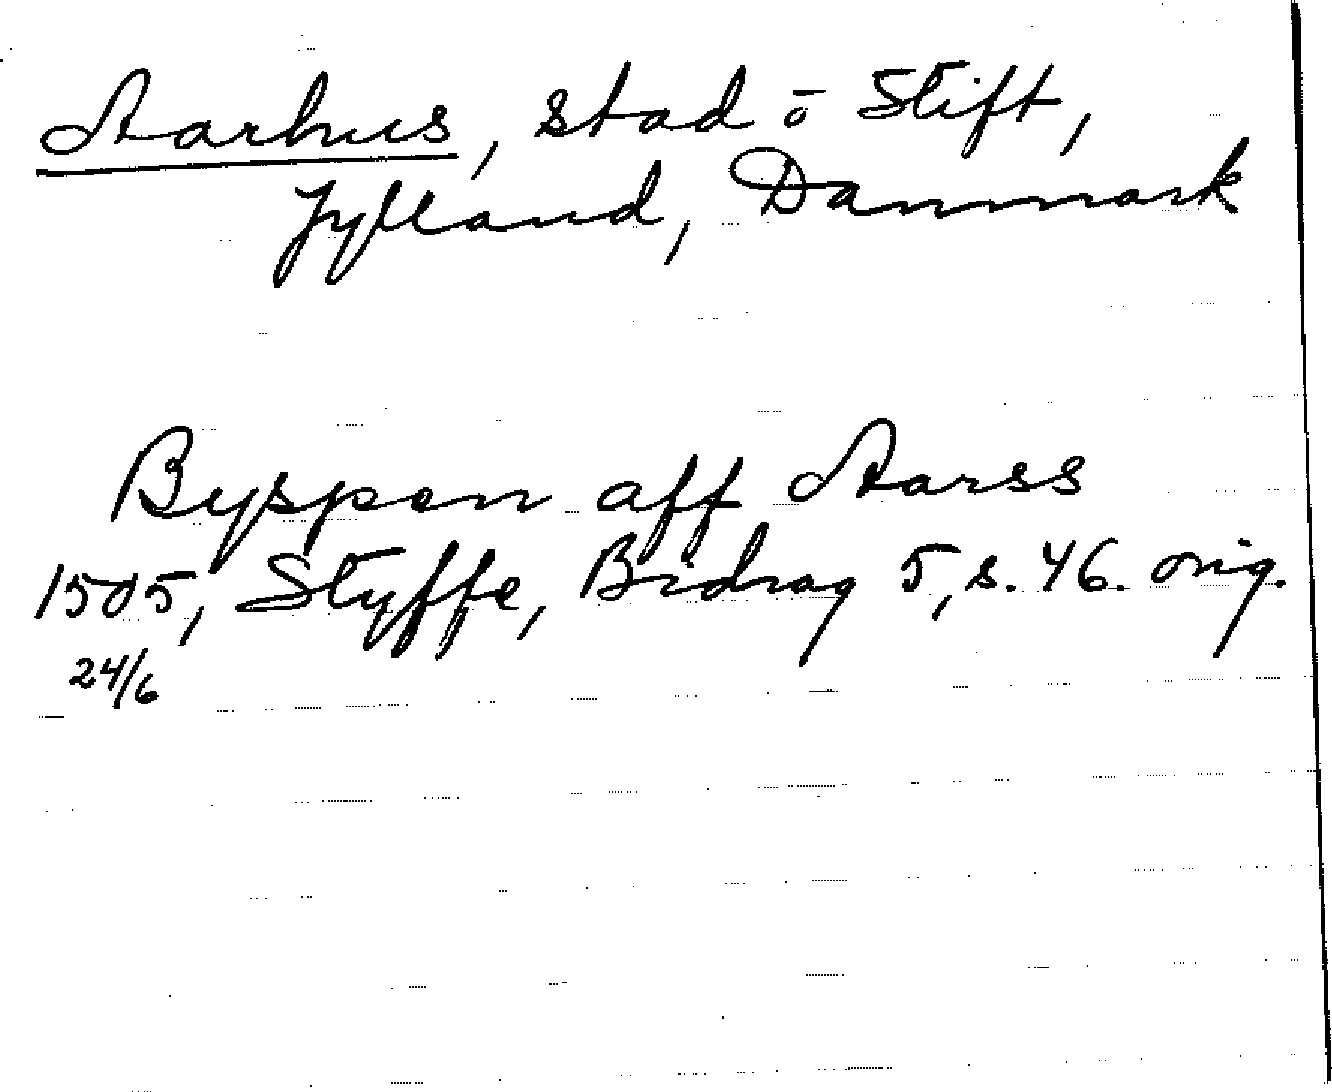 Aarhus, stad o Stift,
Jylland, Danmark
Byspen aff Aarss
1505, Styffe, Bidrag 5, s. 46. orig.
24/6